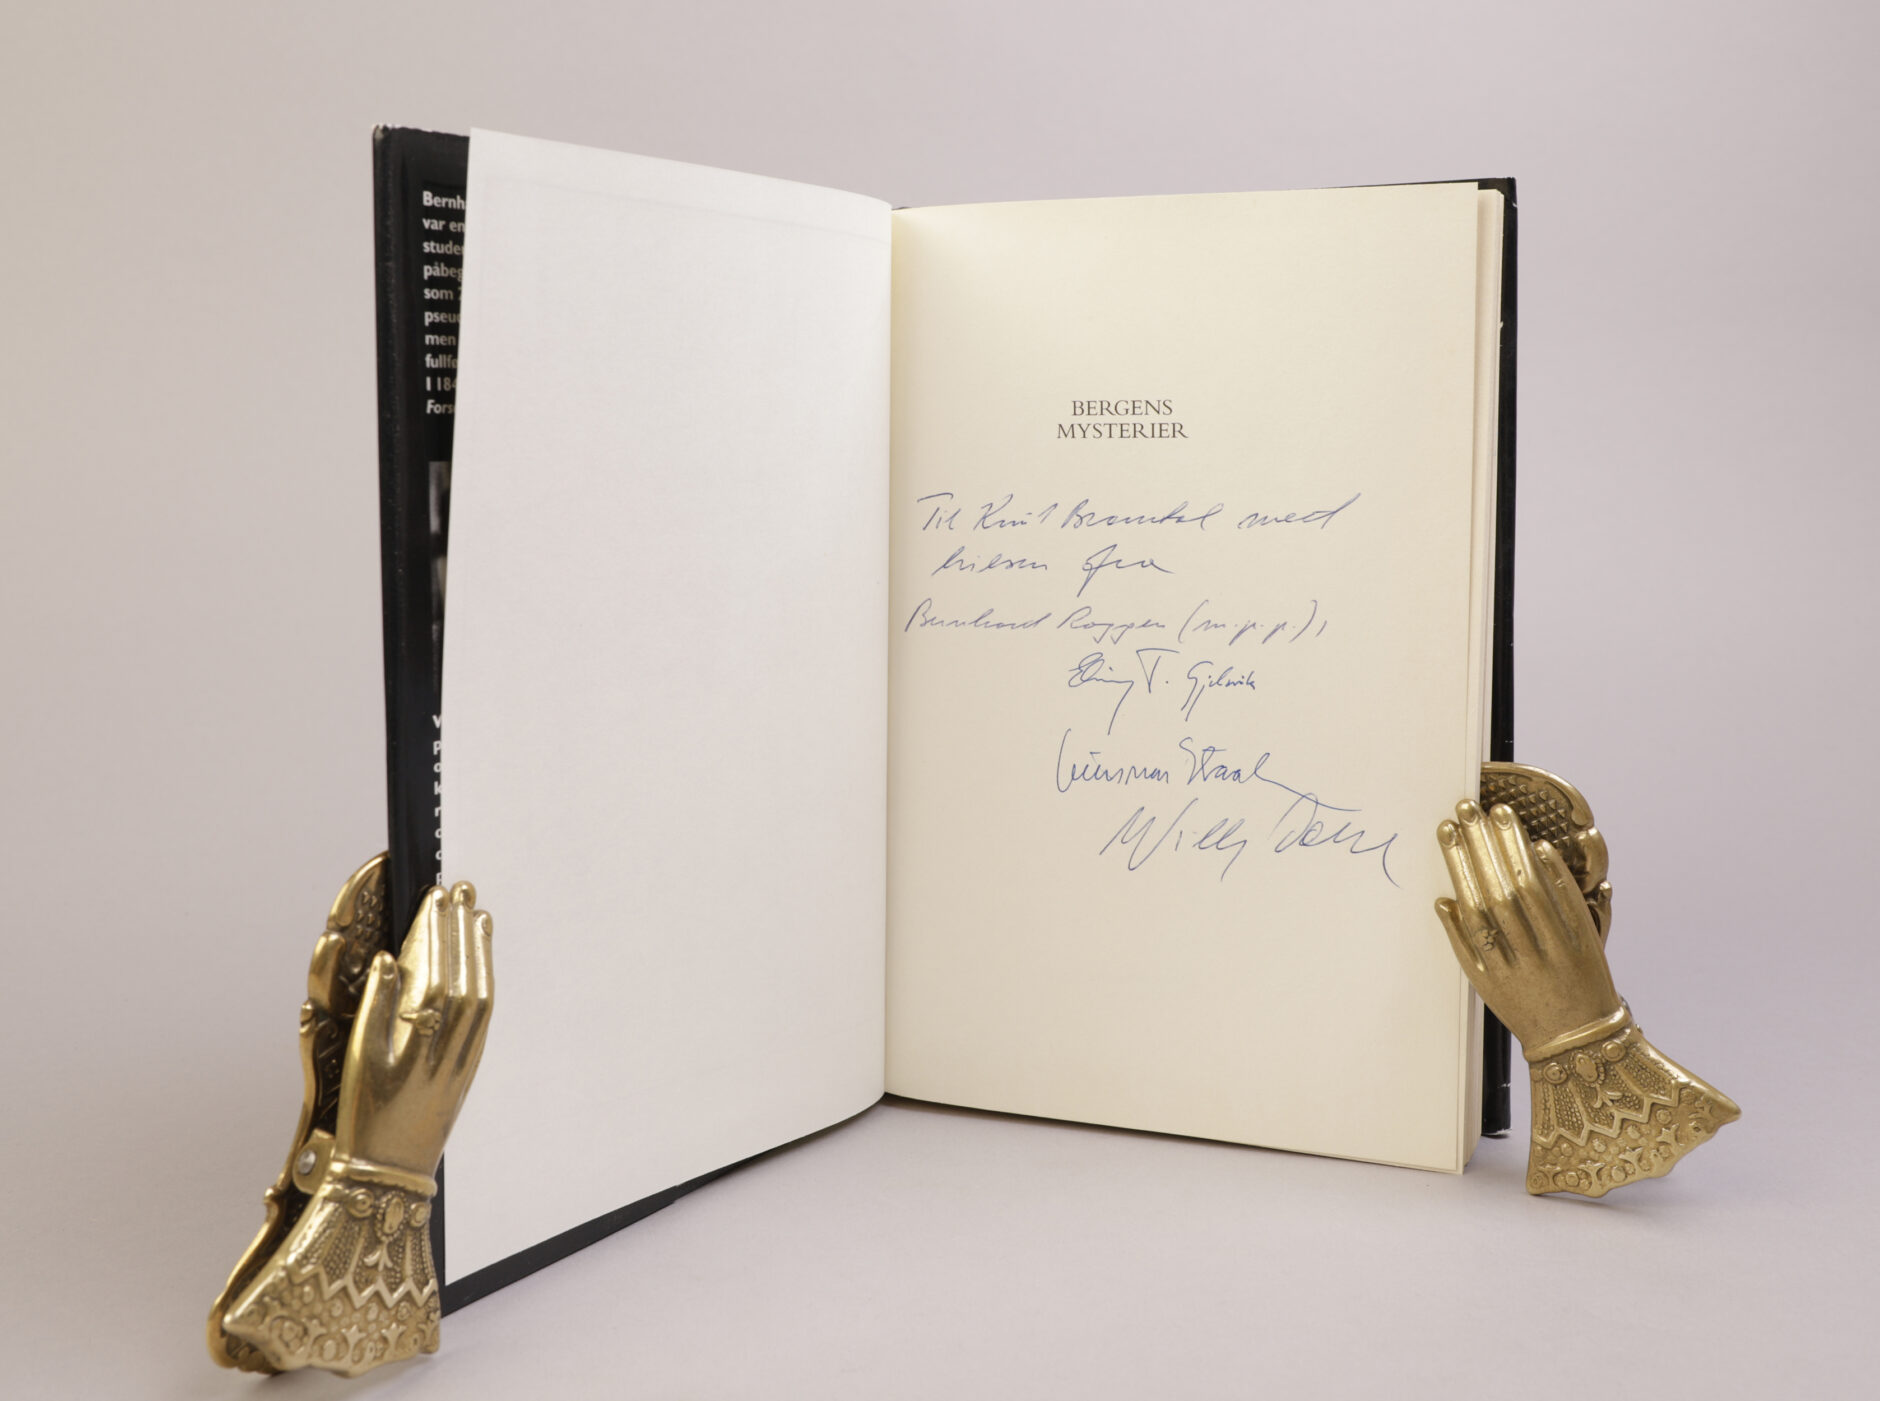 Bernh
var en
stude
påbeg
som
pseud
men
fullfø
I 184
Forsø
BERGENS
MYSTERIER
Til Knut Bromtal med
hilsen fra
Bernhard Roggen (m.p.p.),
T. Gjelsvik
Gunnar Staal
Willy Dahl